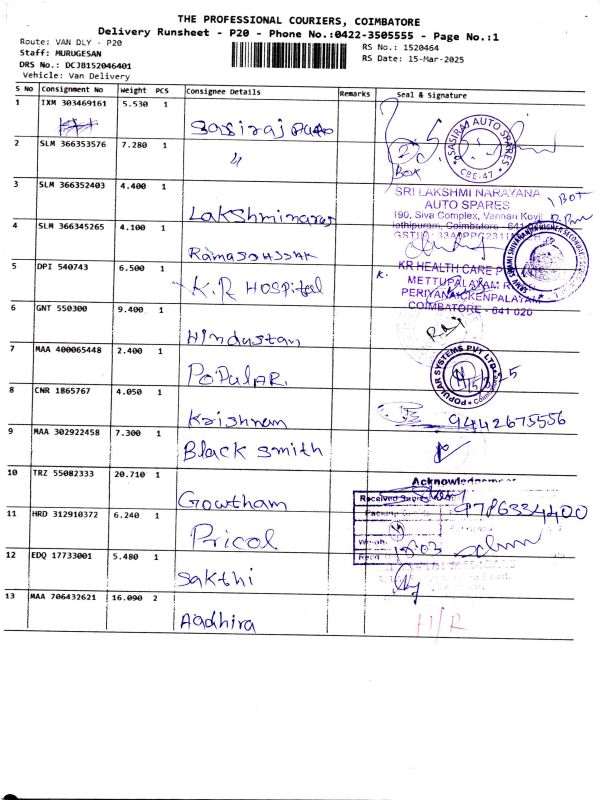 THE PROFESSIONAL COURIERS, COIMBATORE
Delivery Runsheet - P20 - Phone No.:0422-3505555 - Page No.:1
Route: VAN DLY - P20
RS No.: 1520464
Staff: MURUGESAN
RS Date: 15-Mar-2025
DRS No.: DCJB152046401
Vehicle: Van Delivery
S No Consignment No Weight PCS Consignee Details Remarks Seal & Signature
1 IXM 303469161 5.530 1 Sasiraj Auto
SASIRAJ AUTO SPARES
CBE-47
2 SLM 366353576 7.280 1 "
Box
3 SLM 366352403 4.400 1 Lakshminaray
SRI LAKSHMI NARAYANA
AUTO SPARES
190, Siva Complex, Vennan Kovil
4 SLM 366345265 4.100 1
5 DPI 540743 6.500 1 K.R Hospital
KR HEALTH CARE
METTUPALAYAM
PERIYANAICKENPALAYAM
COIMBATORE - 641 020
6 GNT 550300 9.400 1 Hindustan
7 MAA 400065448 2.400 1 Popular.
POPULAR SYSTEMS PVT LTD
8 CNR 1865767 4.050 1 Krishnam
9442675556
9 MAA 302922458 7.300 1 Black Smith
10 TRZ 55082333 20.710 1 Gowtham
9786334400
11 HRD 312910372 6.240 1 Pricol
Received
12 EDQ 17733001 5.480 1 Sakthi
13 MAA 706432621 16.090 2 Aadhira
H/R